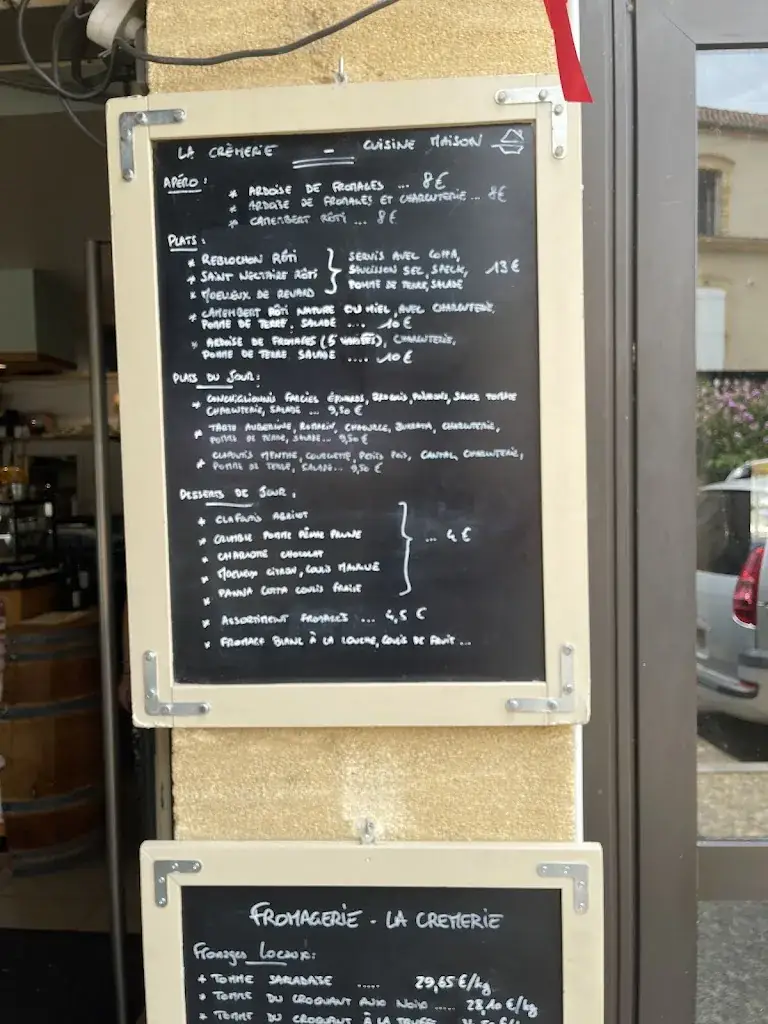 LA CRÈMERIE - CUISINE MAISON
APÉRO :
* ARDOISE DE FROMAGES ... 8€
* ARDOISE DE FROMAGES ET CHARCUTERIE ... 8€
* CAMEMBERT RÔTI ... 8€
PLATS :
* REBLOCHON RÔTI
* SAINT NECTAIRE RÔTI
* MOELLEUX DE REVARD
SERVIS AVEC COPPA,
SAUCISSON SEC, SPECK, 13€
POMME DE TERRE, SALADE
* CAMEMBERT RÔTI NATURE OU MIEL, AVEC CHARCUTERIE,
POMME DE TERRE, SALADE .... 10€
* ARDOISE DE FROMAGES (5 VARIÉTÉS), CHARCUTERIE,
POMME DE TERRE, SALADE .... 10€
PLATS DU JOUR :
* CONCHIGLIONIS FARCIES ÉPINARDS, BROCCIU, POIVRONS, SAUCE TOMATE
CHARCUTERIE, SALADE ... 9,50€
* TARTE AUBERGINE, ROMARIN, CHAOURCE, BURRATA, CHARCUTERIE,
POMME DE TERRE, SALADE ... 9,50€
* CLAFOUTIS MENTHE, COURGETTE, PETITS POIS, CANTAL, CHARCUTERIE,
POMME DE TERRE, SALADE ... 9,50€
DESSERTS DE JOUR :
* CLAFOUTIS ABRICOT
* CRUMBLE POMME PÊCHE PRUNE
* CHARLOTTE CHOCOLAT
* MOELLEUX CITRON, COULIS MANGUE
* PANNA COTTA COULIS FRAISE
... 4€
* ASSORTIMENT FROMAGES ... 4,5€
* FROMAGE BLANC À LA LOUCHE, COULIS DE FRUIT ...
FROMAGERIE - LA CREMERIE
Fromages Locaux :
+ TOMME SARLADAISE ..... 29,65€/kg
* TOMME DU CROQUANT AUX NOIX .... 28,10€/kg
* TOMME DU CROQUANT À LA TRUFFE